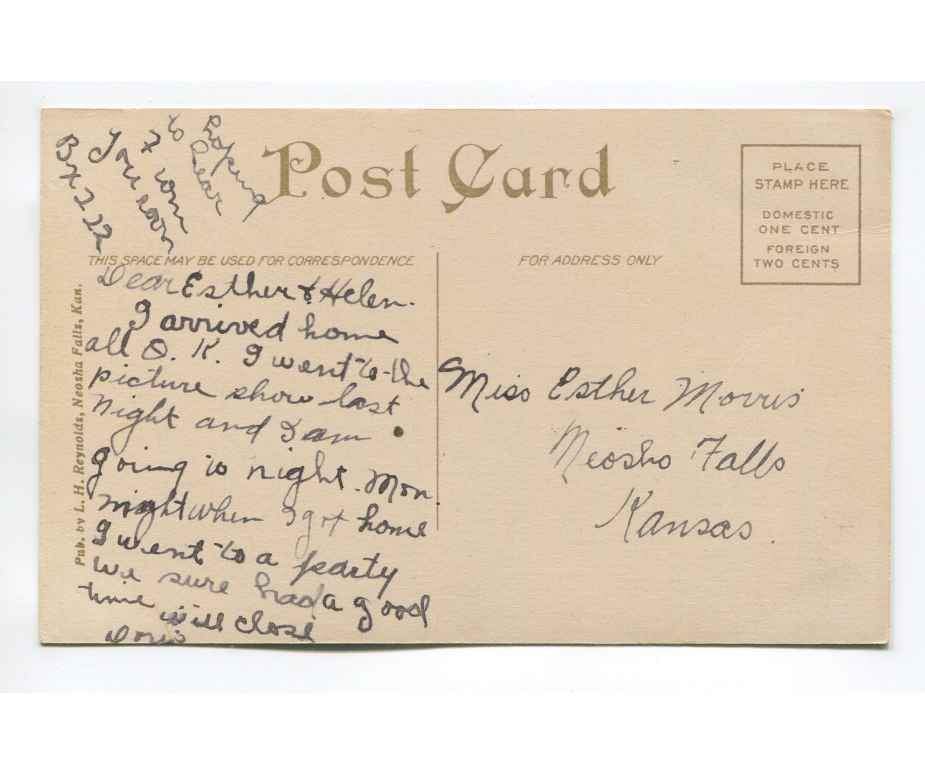 Post Card
PLACE
STAMP HERE
DOMESTIC
ONE CENT
FOREIGN
TWO CENTS
THIS SPACE MAY BE USED FOR CORRESPONDENCE
FOR ADDRESS ONLY
Pub. by L. H. Reynolds, Neosha Falls, Kan.
Dear Esther & Helen.
I arrived home
all O. K. I went to the
picture show last
night and I am
going to night. Mon.
night when I got home
I went to a party
we sure had a good
time will close
Doris
hoping
to hear
from
You soon
Bx 222
Miss Esther Morris
Neosho Falls
Kansas.